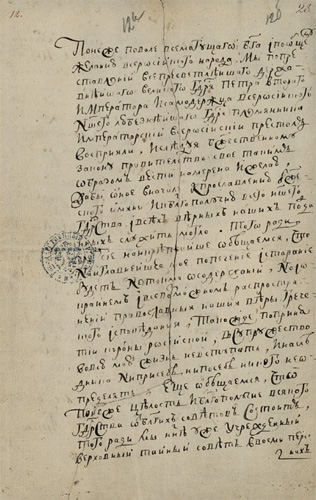 12. 12й 12б 23
Понеже поволе всемогущаго бга ипообщ
желанию всеросиїского народа мы попре
ставлениї всепресветлеишаго держа
внѣишаго великого гдря петра втораго
императора исамодержца всеросиїского
ншего любезнеишаго гдря племянника
императорскиї всеросиїскиї престолъ
восприяли, ислѣдуя божественному
закону правителство свое такимъ
образомъ вести намерена и желаю
дабы оное вначале кпрославлению бже
ского имяни ивблагополучию всего ншего
гдрства ївсѣхъ вѣрныхъ нашихъ подда
нныхъ служить могло. Того ради
чрезъ сие наикрѣпчаише обещаемся, что
наиглавнеишее мое попечение їстарание
будетъ нетокмо осодержаниї, но їокр
аинемъ ївсевозможномъ распростра
нениї православные нашие вѣры грече
ского їсповѣдания, такожде попринят
тиї короны росиїскои, всупружество
вовсю мою жизнь невступать, инаслѣ
дника, ниприсебѣ, нипосебѣ никого нео
пределять. Еще обѣщаемся, что
понеже цѣлость иблагополучие всякого
гдрства отблагихъ совѣтовъ состоитъ,
того ради мы ннѣ уже учрежденныї
верховныї таїныї совѣтъ восми пер
сонахъ